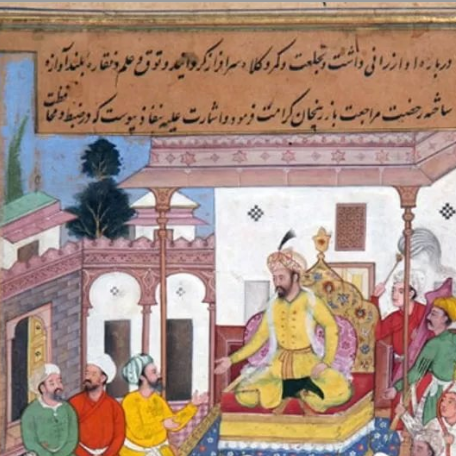 درباره او ارزانی داشت و بخلعت و کمر و کلاه سرافراز کردانید و توقع علم و نقاره بلند آوازه
ساخته رخصت مراجعت بازرنجان کرامت فرمود و اشارت علیه نفاذ پیوست که در ضبط و محافظت